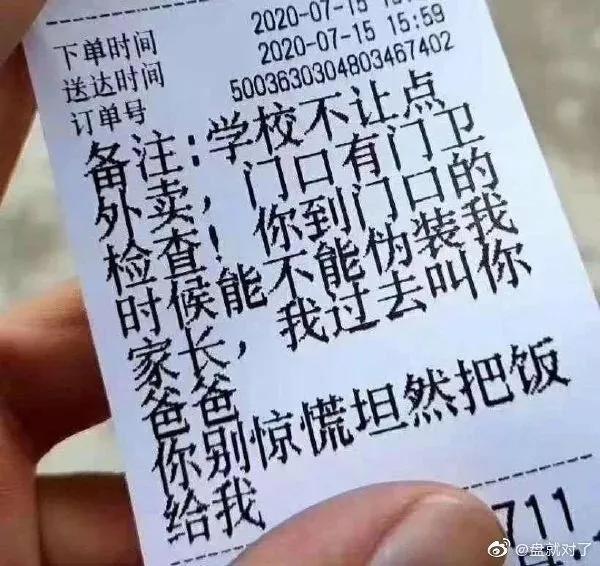 下单时间 2020-07-15 15
送达时间 2020-07-15 15:59
订单号 5003630304803467402
备注:学校不让点
外卖,门口有门卫
检查!你到门口的
时候能不能伪装我
家长,我过去叫你
爸爸
你别惊慌坦然把饭
给我
711
@盘就对了